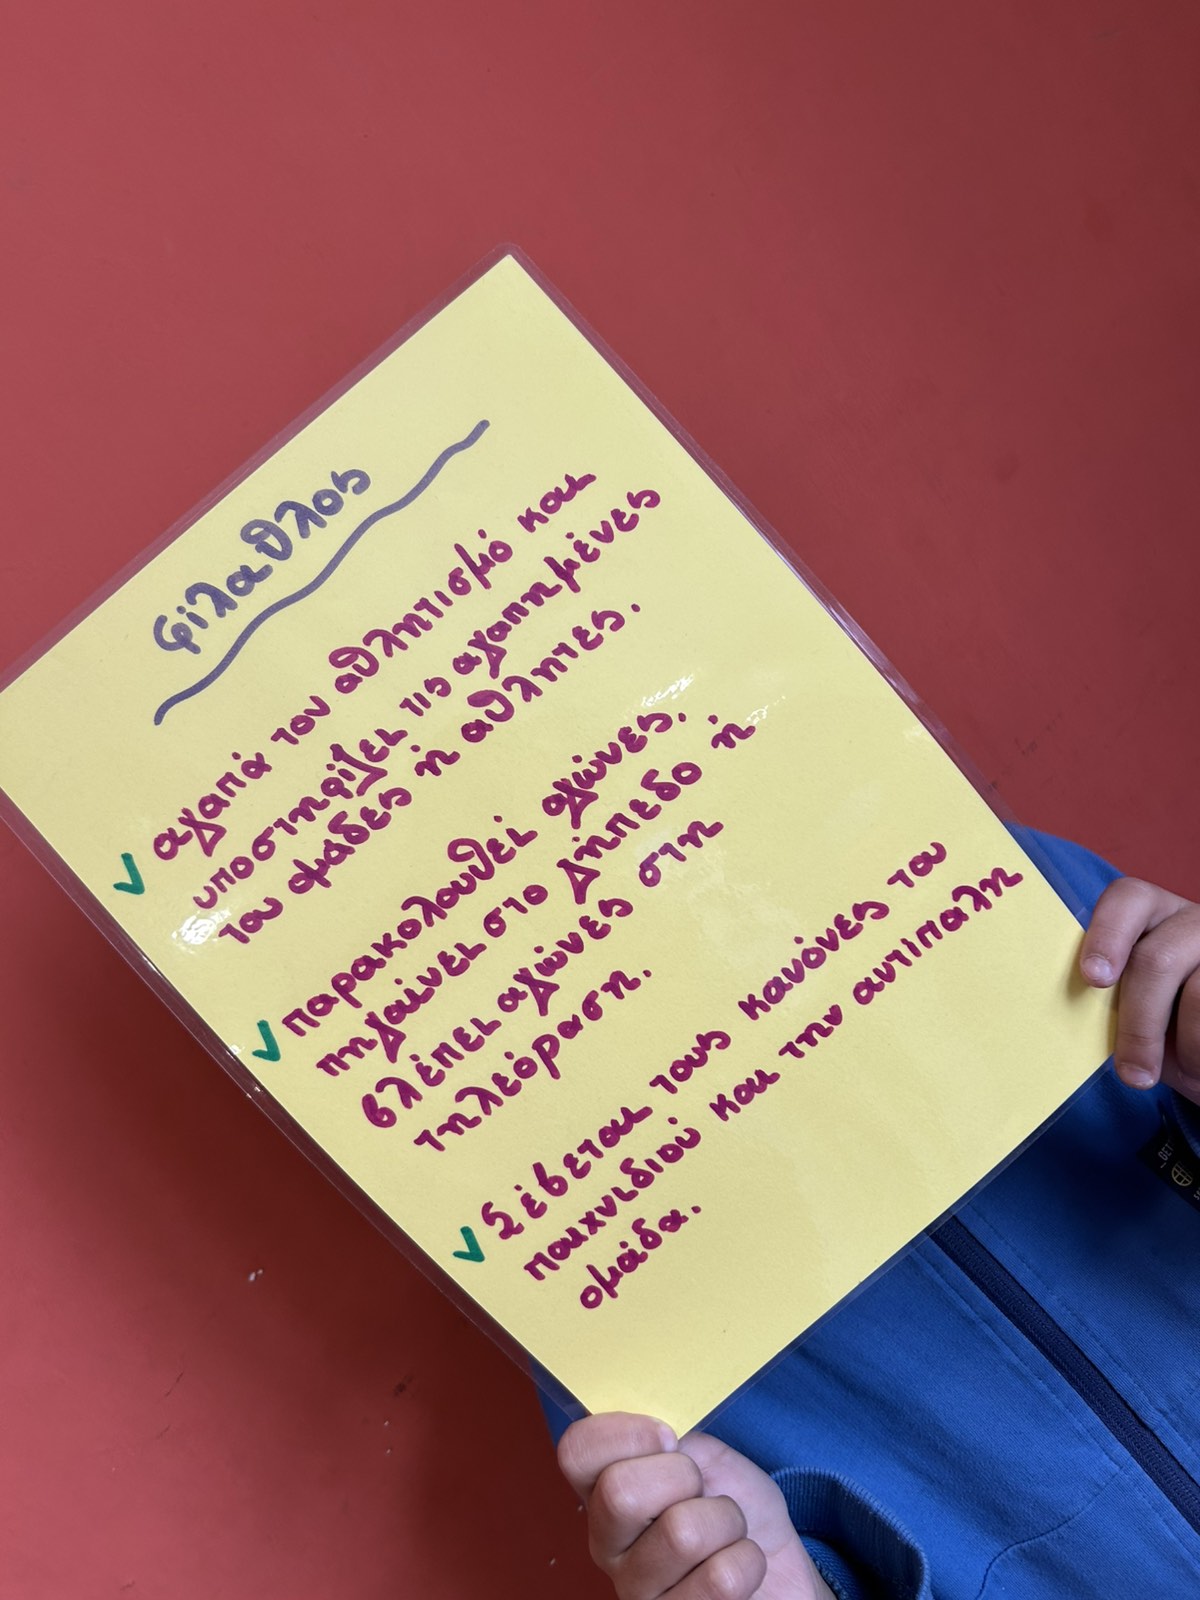 φίλαθλος
✓ αγαπά τον αθλητισμό και
υποστηρίζει τις αγαπημένες
του ομάδες ή αθλητές.
✓ παρακολουθεί αγώνες.
πηγαίνει στο γήπεδο ή
βλέπει αγώνες στη
τηλεόραση.
✓ Σέβεται τους κανόνες του
παιχνιδιού και την αντίπαλη
ομάδα.